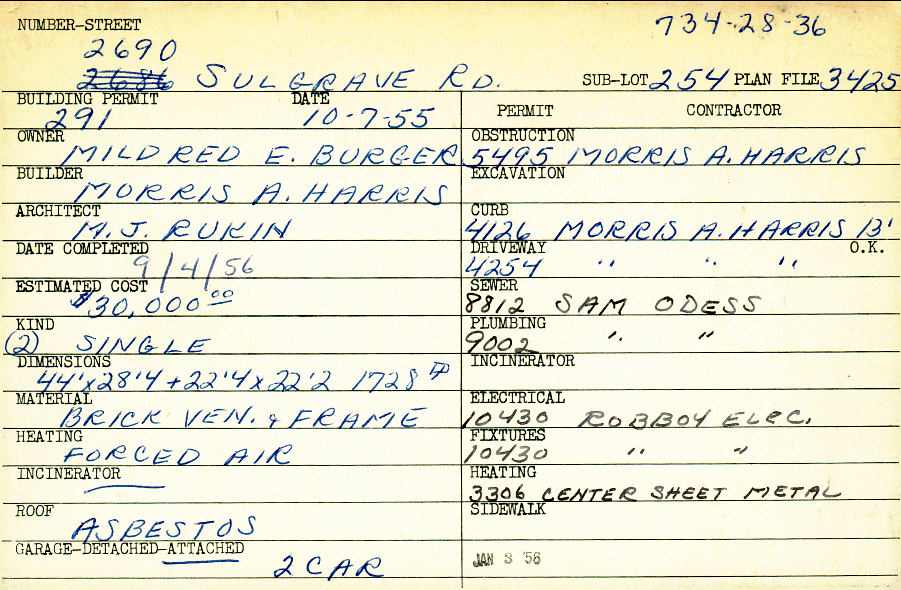 NUMBER-STREET 734-28-36
2690
2686 SULGRAVE RD. SUB-LOT 254 PLAN FILE 3425
BUILDING PERMIT DATE
291 10-7-55
PERMIT CONTRACTOR
OWNER
MILDRED E. BURGER
OBSTRUCTION
5495 MORRIS A. HARRIS
BUILDER
MORRIS A. HARRIS
EXCAVATION
ARCHITECT
M. J. RUKIN
CURB
4126 MORRIS A. HARRIS 13'
DATE COMPLETED
9/4/56
DRIVEWAY O.K.
4254 " " "
ESTIMATED COST
$30,000.00
SEWER
8812 SAM ODESS
KIND
(2) SINGLE
PLUMBING
9002 " "
DIMENSIONS
44'x28'4+22'4x22'2 1728
INCINERATOR
MATERIAL
BRICK VEN. & FRAME
ELECTRICAL
10430 ROBBOY ELEC.
HEATING
FORCED AIR
FIXTURES
10430 " "
INCINERATOR
HEATING
3306 CENTER SHEET METAL
ROOF
ASBESTOS
SIDEWALK
GARAGE-DETACHED-ATTACHED
2 CAR
JAN 3 '56